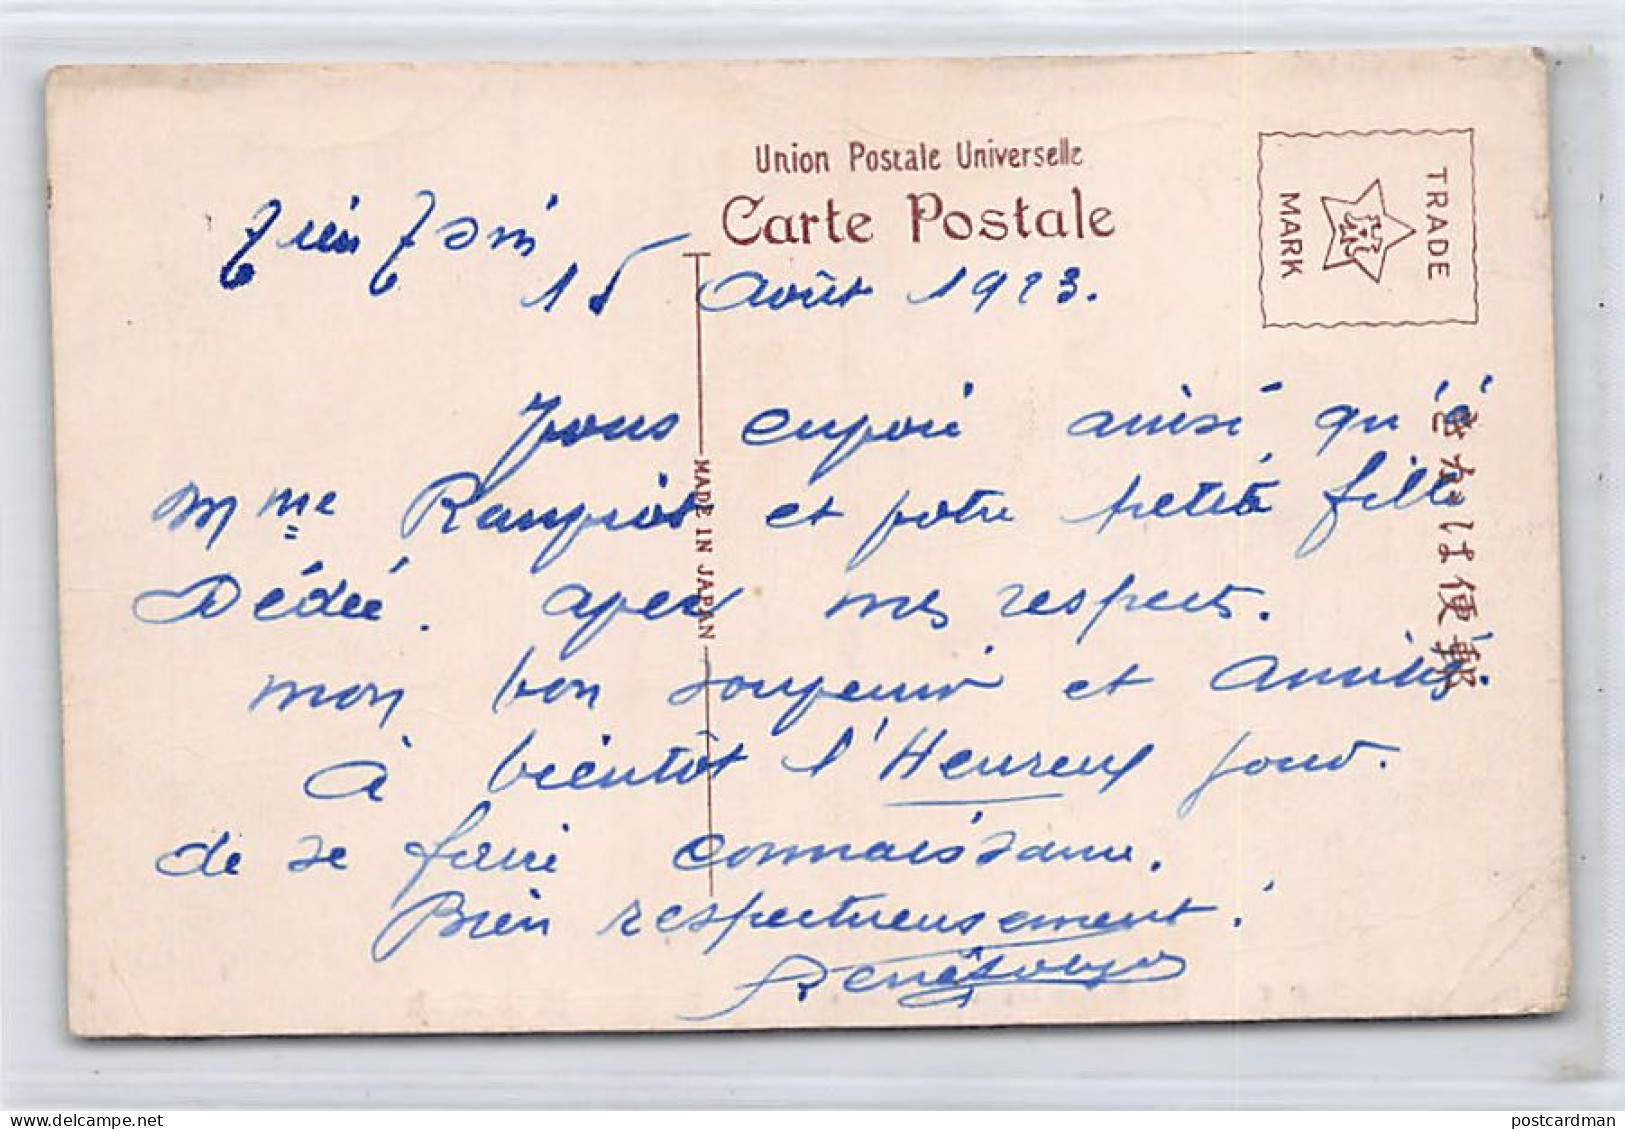 Union Postale Universelle
Carte Postale
TRADE
MARK
MADE IN JAPAN
きがは便郵
15 Août 1923.
Vous envoie ainsi qu'à
Mme et votre petite fille
Dédée. avec mes respects.
mon bon souvenir et amitiés.
À bientôt l'Heureux jour.
de se faire connaissance.
Bien respectueusement.
René
postcardman